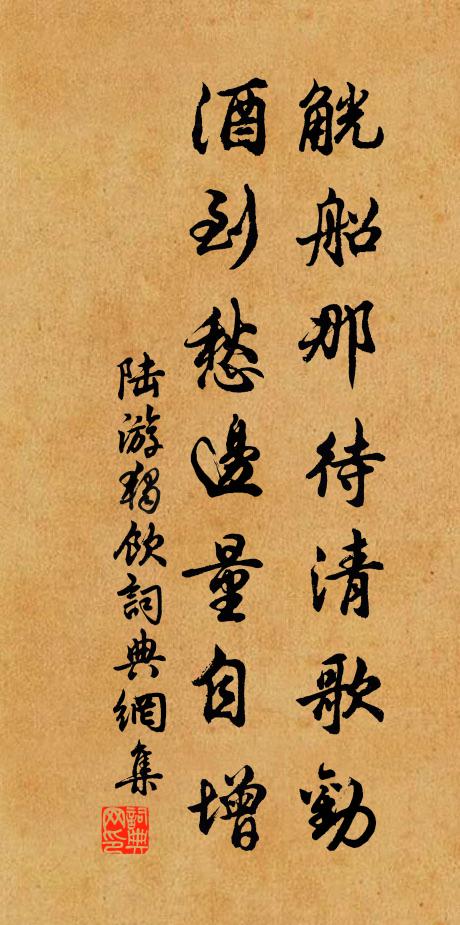 觥船那待清歌勸
酒到愁邊量自增
陆游獨飲詞典網集
詞典网印